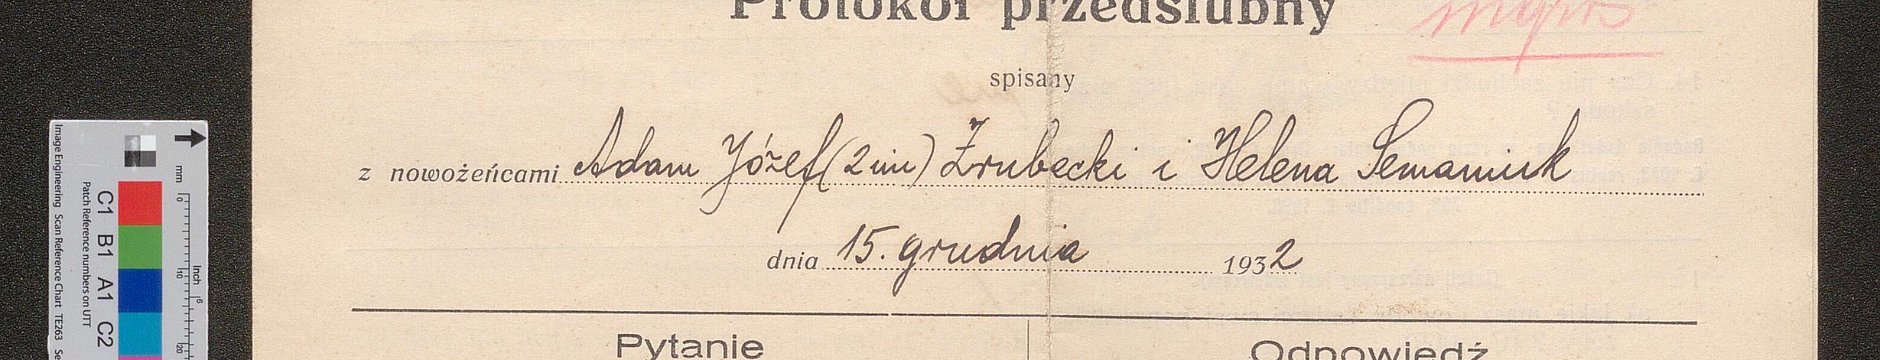 Protokół przedślubny
spisany
z nowożeńcami Adam Józef (2 im) Zrubecki i Helena Semaniuk
dnia 15. grudnia 1932
Pytanie Odpowiedź
Image Engineering Scan Reference Chart TE263
Patch Reference numbers on UTT
C1 B1 A1 C2
mm
Inch